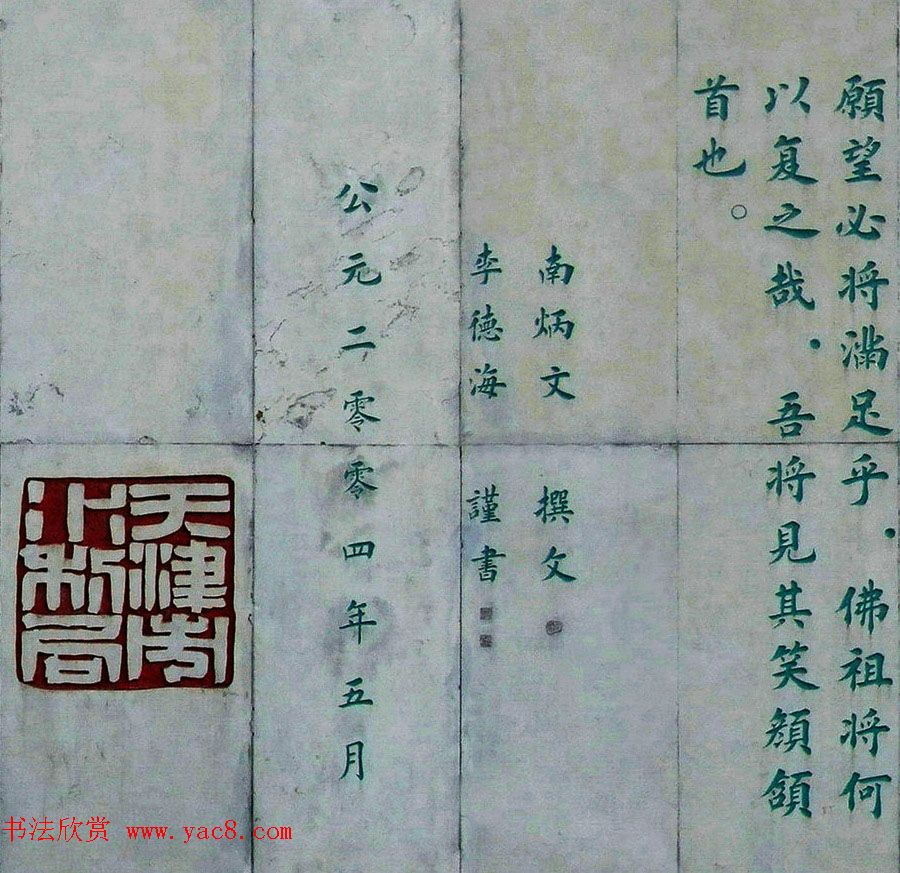 願望必將滿足乎．佛祖將何
以复之哉．吾將見其笑顏頷
首也。
南炳文 撰文
李德海 謹書
公元二零零四年五月
天津市
水利局
书法欣赏 www.yac8.com